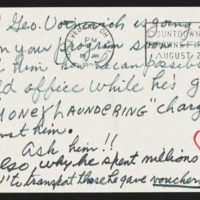 Geo. Voinovich is going
on your program soon
him how he can possib
ld office while he's
MONEY LAUNDERING" charg
nst him.
Ask him!!
lso, why he spent millions
to transport those he gave vouchers
VERNON
PM
COUNTDOWN
AUGUST 2